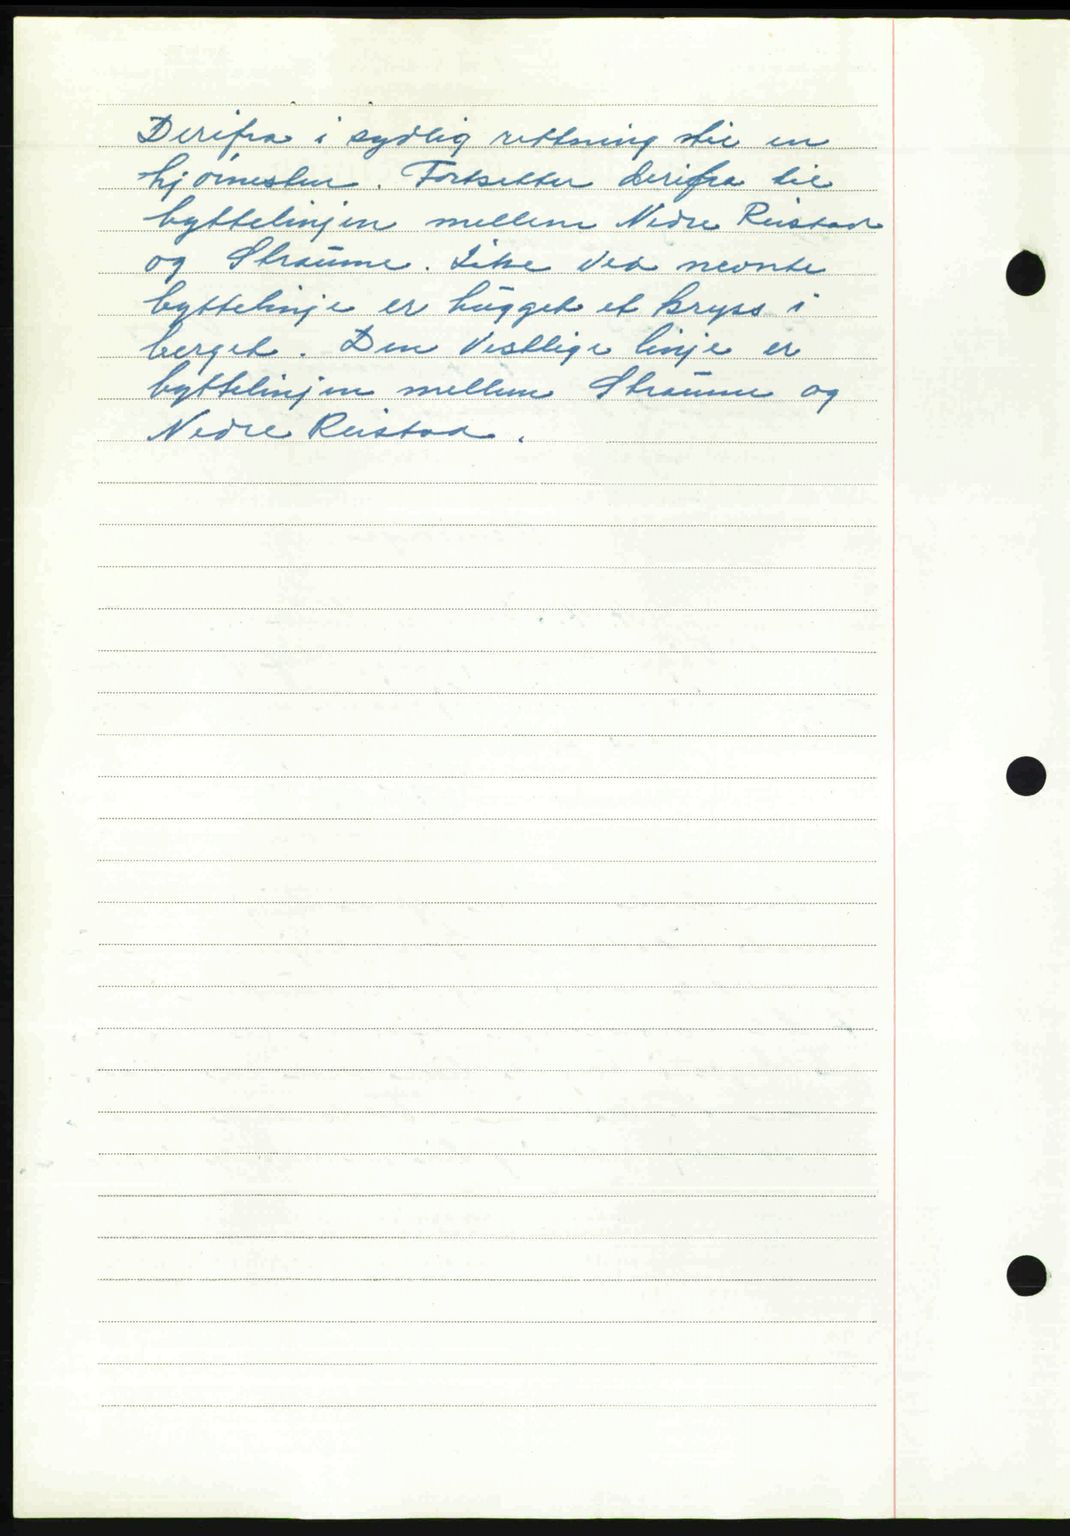 Derifra i sydlig rettning til en
hjørnesten. Fortsetter derifra til
byttelinjen mellem Nedre Reistad
og Straume. Like ved nevnte
byttelinje er hugget et kryss i
berget. Den vestlige linje er
byttelinjen mellem Straume og
Nedre Reistad.